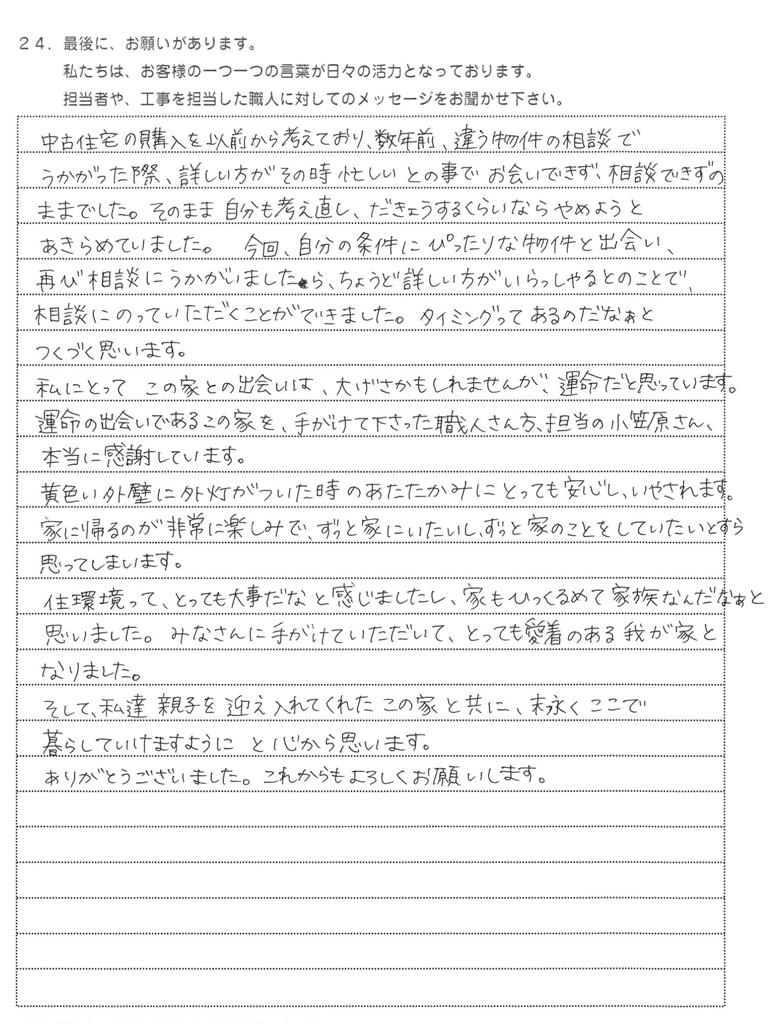 ２４．最後に、お願いがあります。
私たちは、お客様の一つ一つの言葉が日々の活力となっております。
担当者や、工事を担当した職人に対してのメッセージをお聞かせ下さい。
中古住宅の購入を以前から考えており、数年前、違う物件の相談で
うかがった際、詳しい方がその時忙しいとの事でお会いできず、相談できずの
ままでした。そのまま自分も考え直し、だきょうするくらいならやめようと
あきらめていました。 今回、自分の条件にぴったりな物件と出会い、
再び相談にうかがいましたら、ちょうど詳しい方がいらっしゃるとのことで、
相談にのっていただくことができました。タイミングってあるのだなぁと
つくづく思います。
私にとって この家との出会いは、大げさかもしれませんが、運命だと思っています。
運命の出会いであるこの家を、手がけて下さった職人さん方、担当の小笠原さん、
本当に感謝しています。
黄色い外壁に外灯がついた時のあたたかみにとっても安心し、いやされます。
家に帰るのが非常に楽しみで、ずっと家にいたいし、ずっと家のことをしていたいとすら
思ってしまいます。
住環境って、とっても大事だなと感じましたし、家もひっくるめて家族なんだなぁと
思いました。みなさんに手がけていただいて、とっても愛着のある我が家と
なりました。
そして、私達親子を迎え入れてくれたこの家と共に、末永くここで
暮らしていけますように と心から思います。
ありがとうございました。これからもよろしくお願いします。